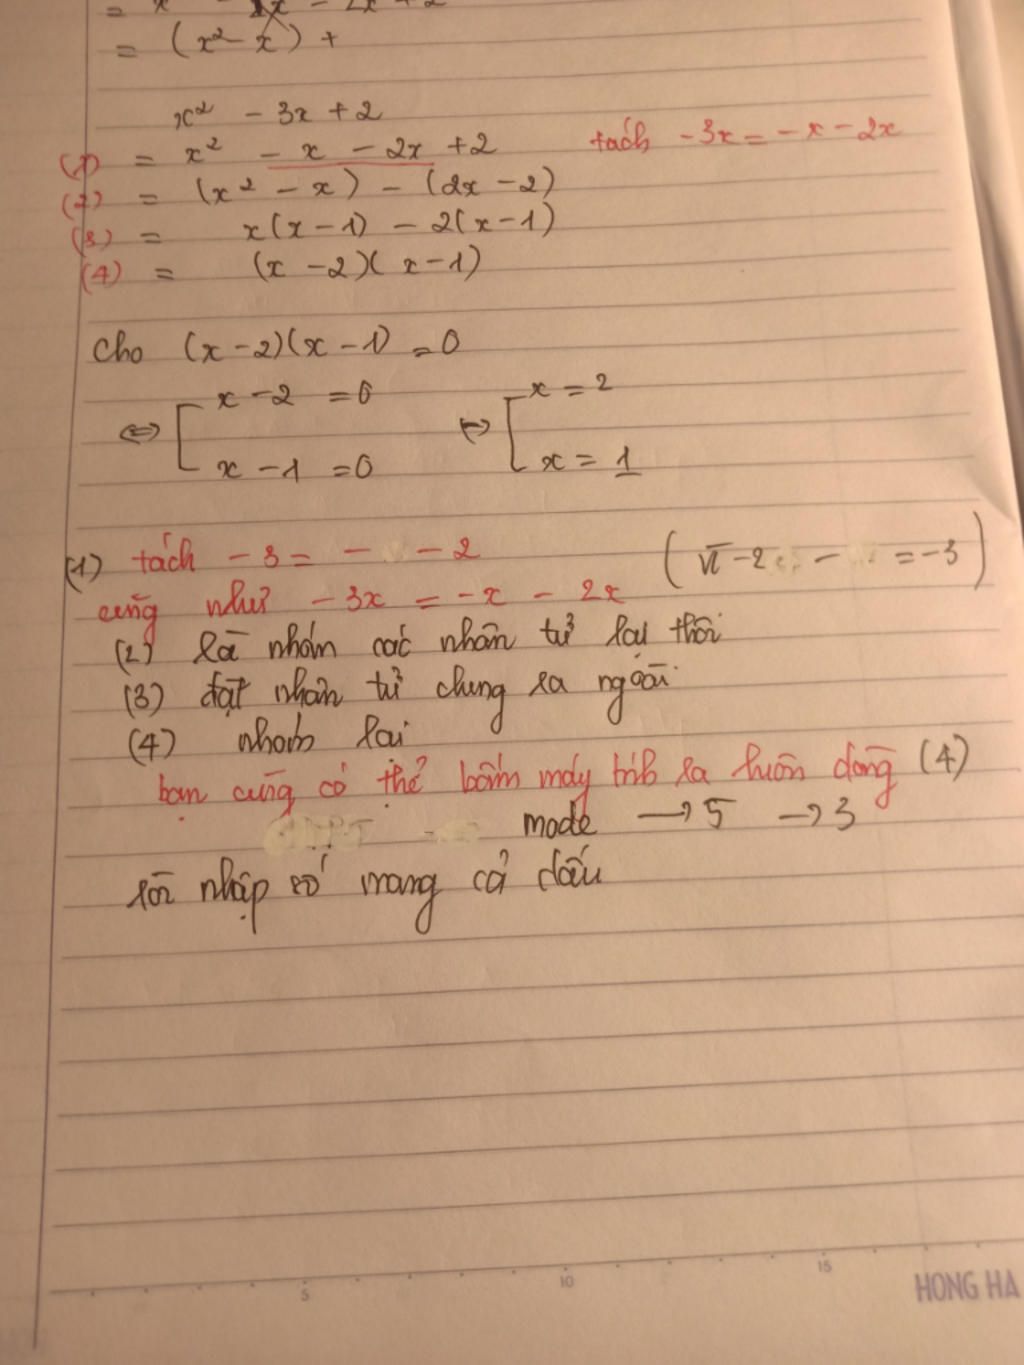 = (x² - x) +
x² - 3x + 2
(1) = x² - x - 2x + 2 tách -3x = -x - 2x
(2) = (x² - x) - (2x - 2)
(3) = x(x - 1) - 2(x - 1)
(4) = (x - 2)(x - 1)
Cho (x - 2)(x - 1) = 0
⇔ [ x - 2 = 0 ⇔ [ x = 2
x - 1 = 0 x = 1
(1) tách -3 = - - 2 (vì -2 - = -3)
cũng như -3x = -x - 2x
(2) là nhóm các nhân tử lại thôi
(3) đặt nhân tử chung ra ngoài
(4) nhóm lại
bạn cũng có thể bấm máy tính ra luôn dòng (4)
mode → 5 → 3
rồi nhập số mang cả dấu
5 10 15
HONG HA